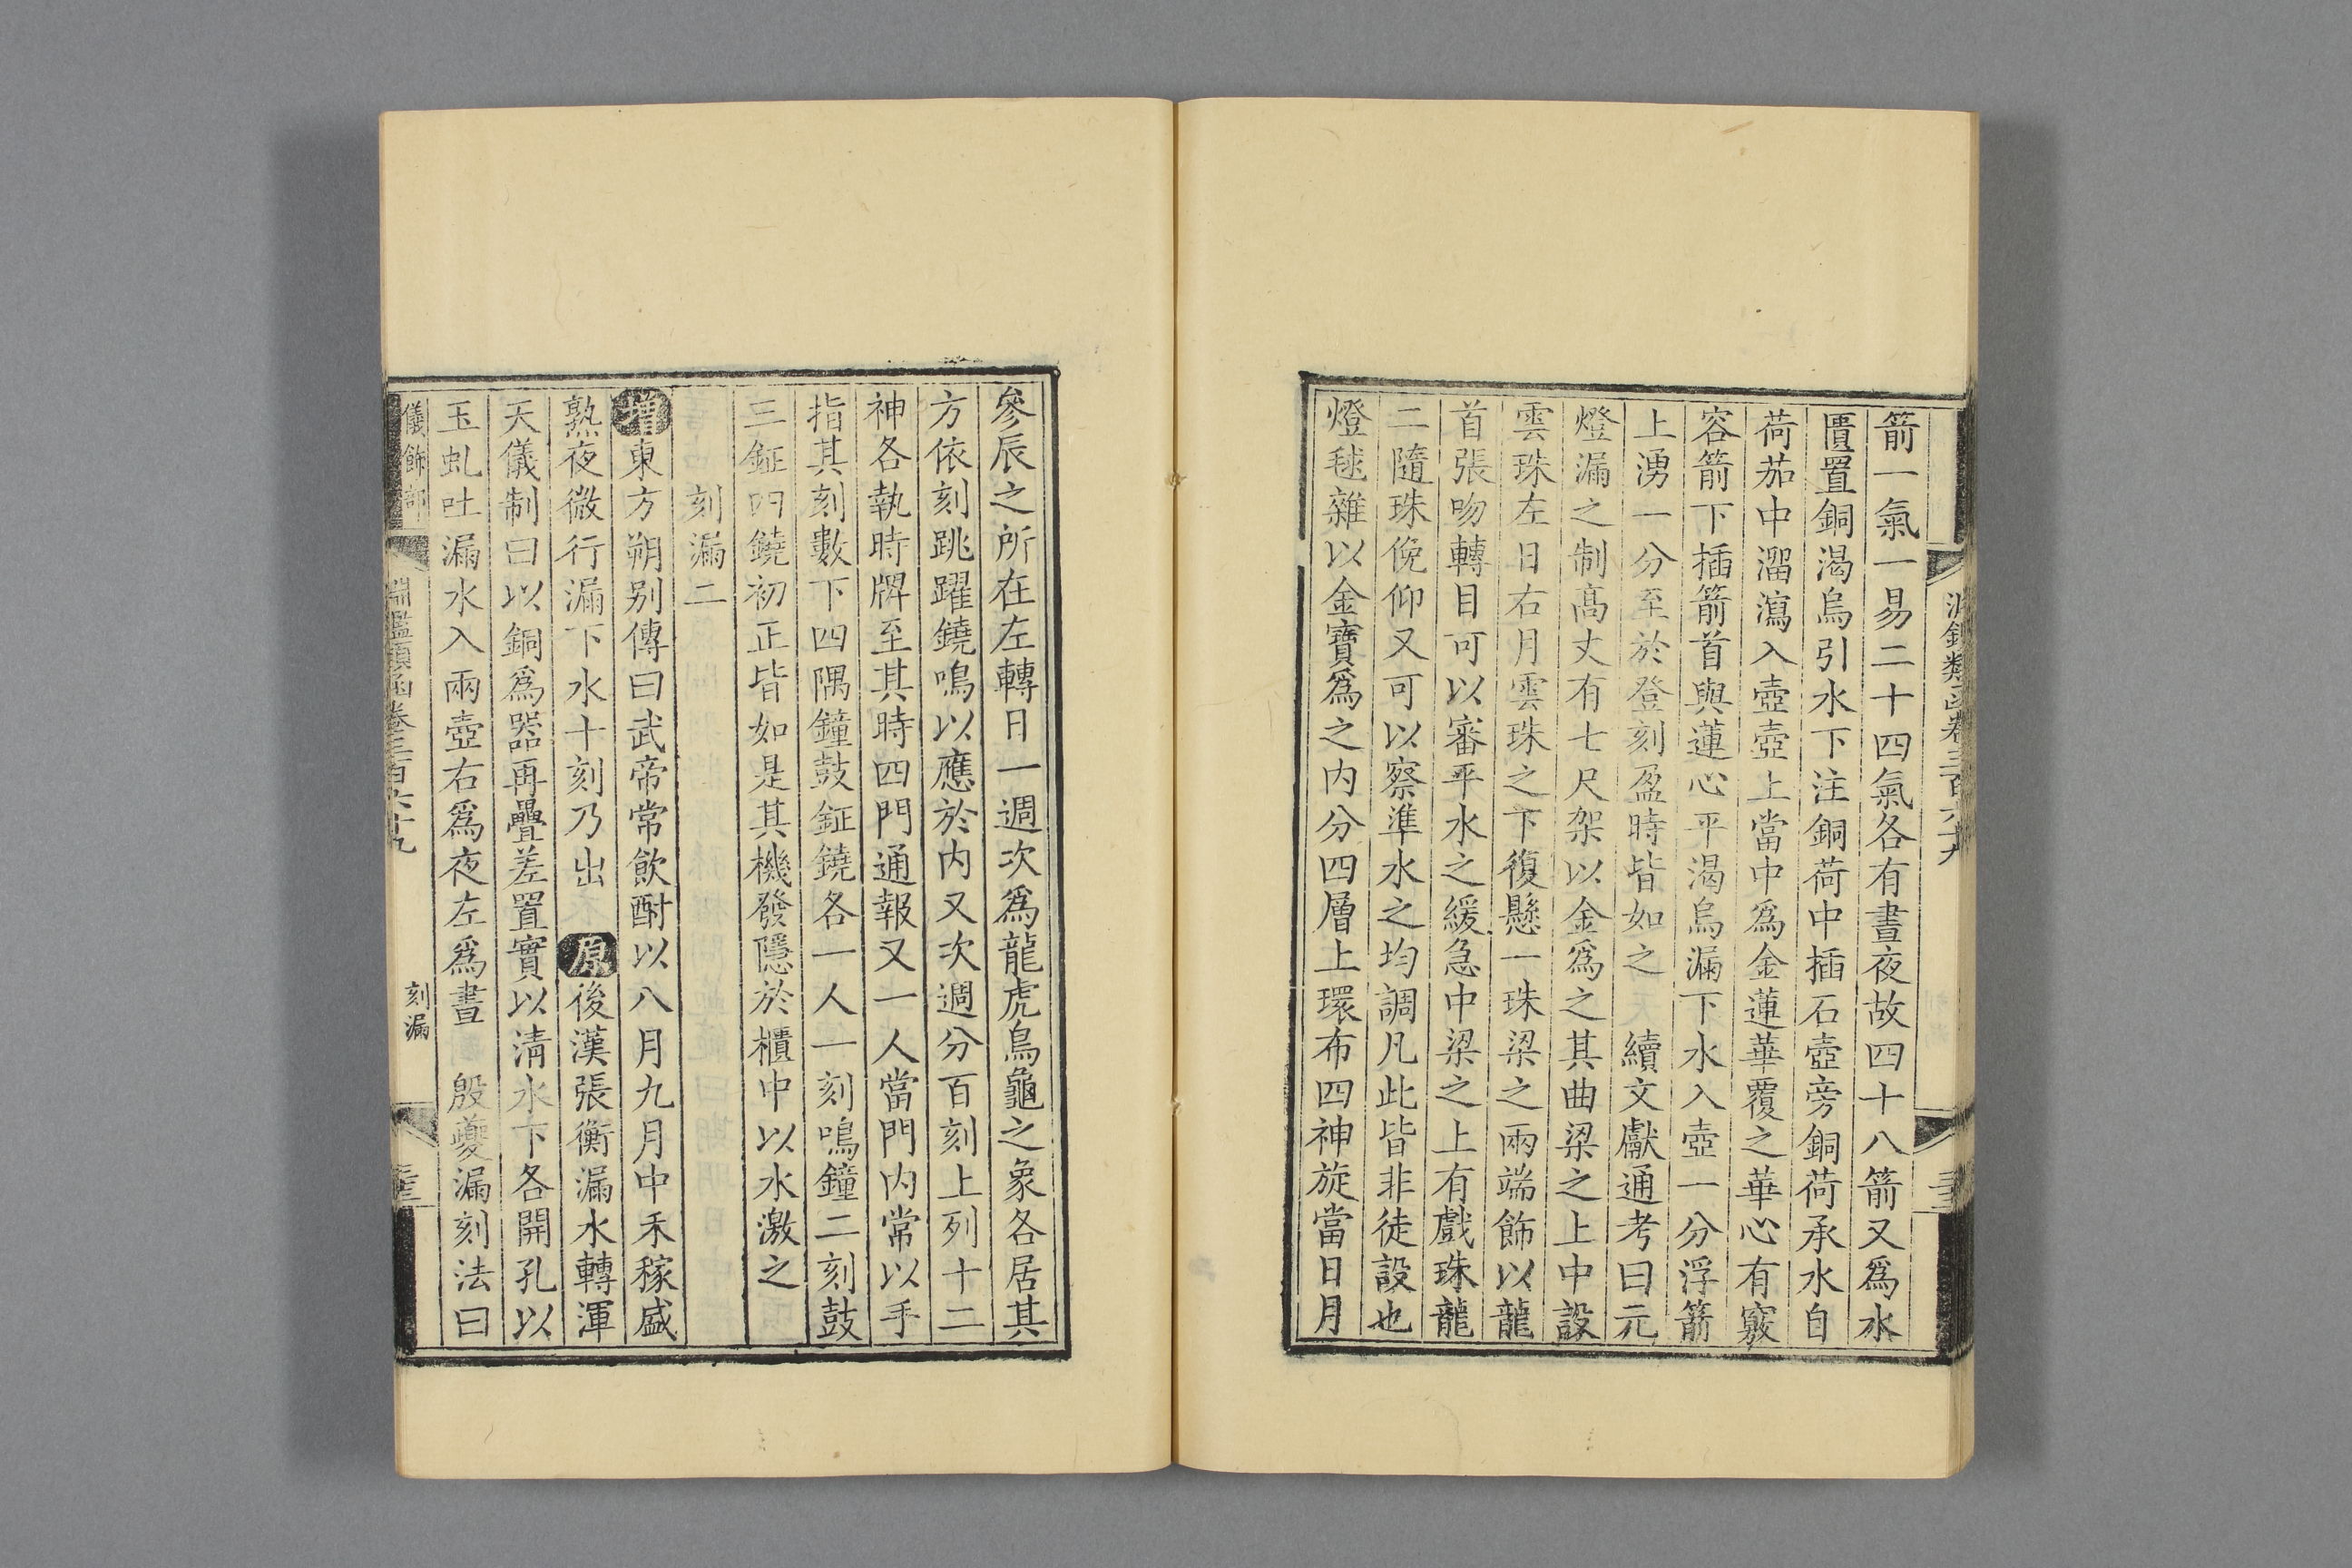 箭一氣一易二十四氣各有晝夜故四十八箭又爲水
匱置銅渴烏引水下注銅荷中插石壺旁銅荷承水自
荷茄中溜瀉入壺壺上當中爲金蓮華覆之華心有竅
容箭下插箭首與蓮心平渴烏漏下水入壺一分浮箭
上湧一分至於登刻盈時皆如之　續文獻通考曰元
燈漏之制高丈有七尺架以金爲之其曲梁之上中設
雲珠左日右月雲珠之下復懸一珠梁之兩端飾以龍
首張吻轉目可以審平水之緩急中梁之上有戲珠龍
二隨珠俛仰又可以察準水之均調凡此皆非徒設也
燈毬雜以金寶爲之内分四層上環布四神旋當日月
參辰之所在左轉日一週次爲龍虎鳥龜之象各居其
方依刻跳躍鐃鳴以應於内又次週分百刻上列十二
神各執時牌至其時四門通報又一人當門内常以手
指其刻數下四隅鐘鼓鉦鐃各一人一刻鳴鐘二刻鼓
三鉦四鐃初正皆如是其機發隱於櫃中以水激之
刻漏二
增東方朔别傳曰武帝常飲酎以八月九月中禾稼盛
熟夜微行漏下水十刻乃出　原後漢張衡漏水轉渾
天儀制曰以銅爲器再疊差置實以清水下各開孔以
玉虬吐漏水入兩壺右爲夜左爲晝　殷夔漏刻法曰
儀飾部
淵鑑類函卷三百六十九
刻漏